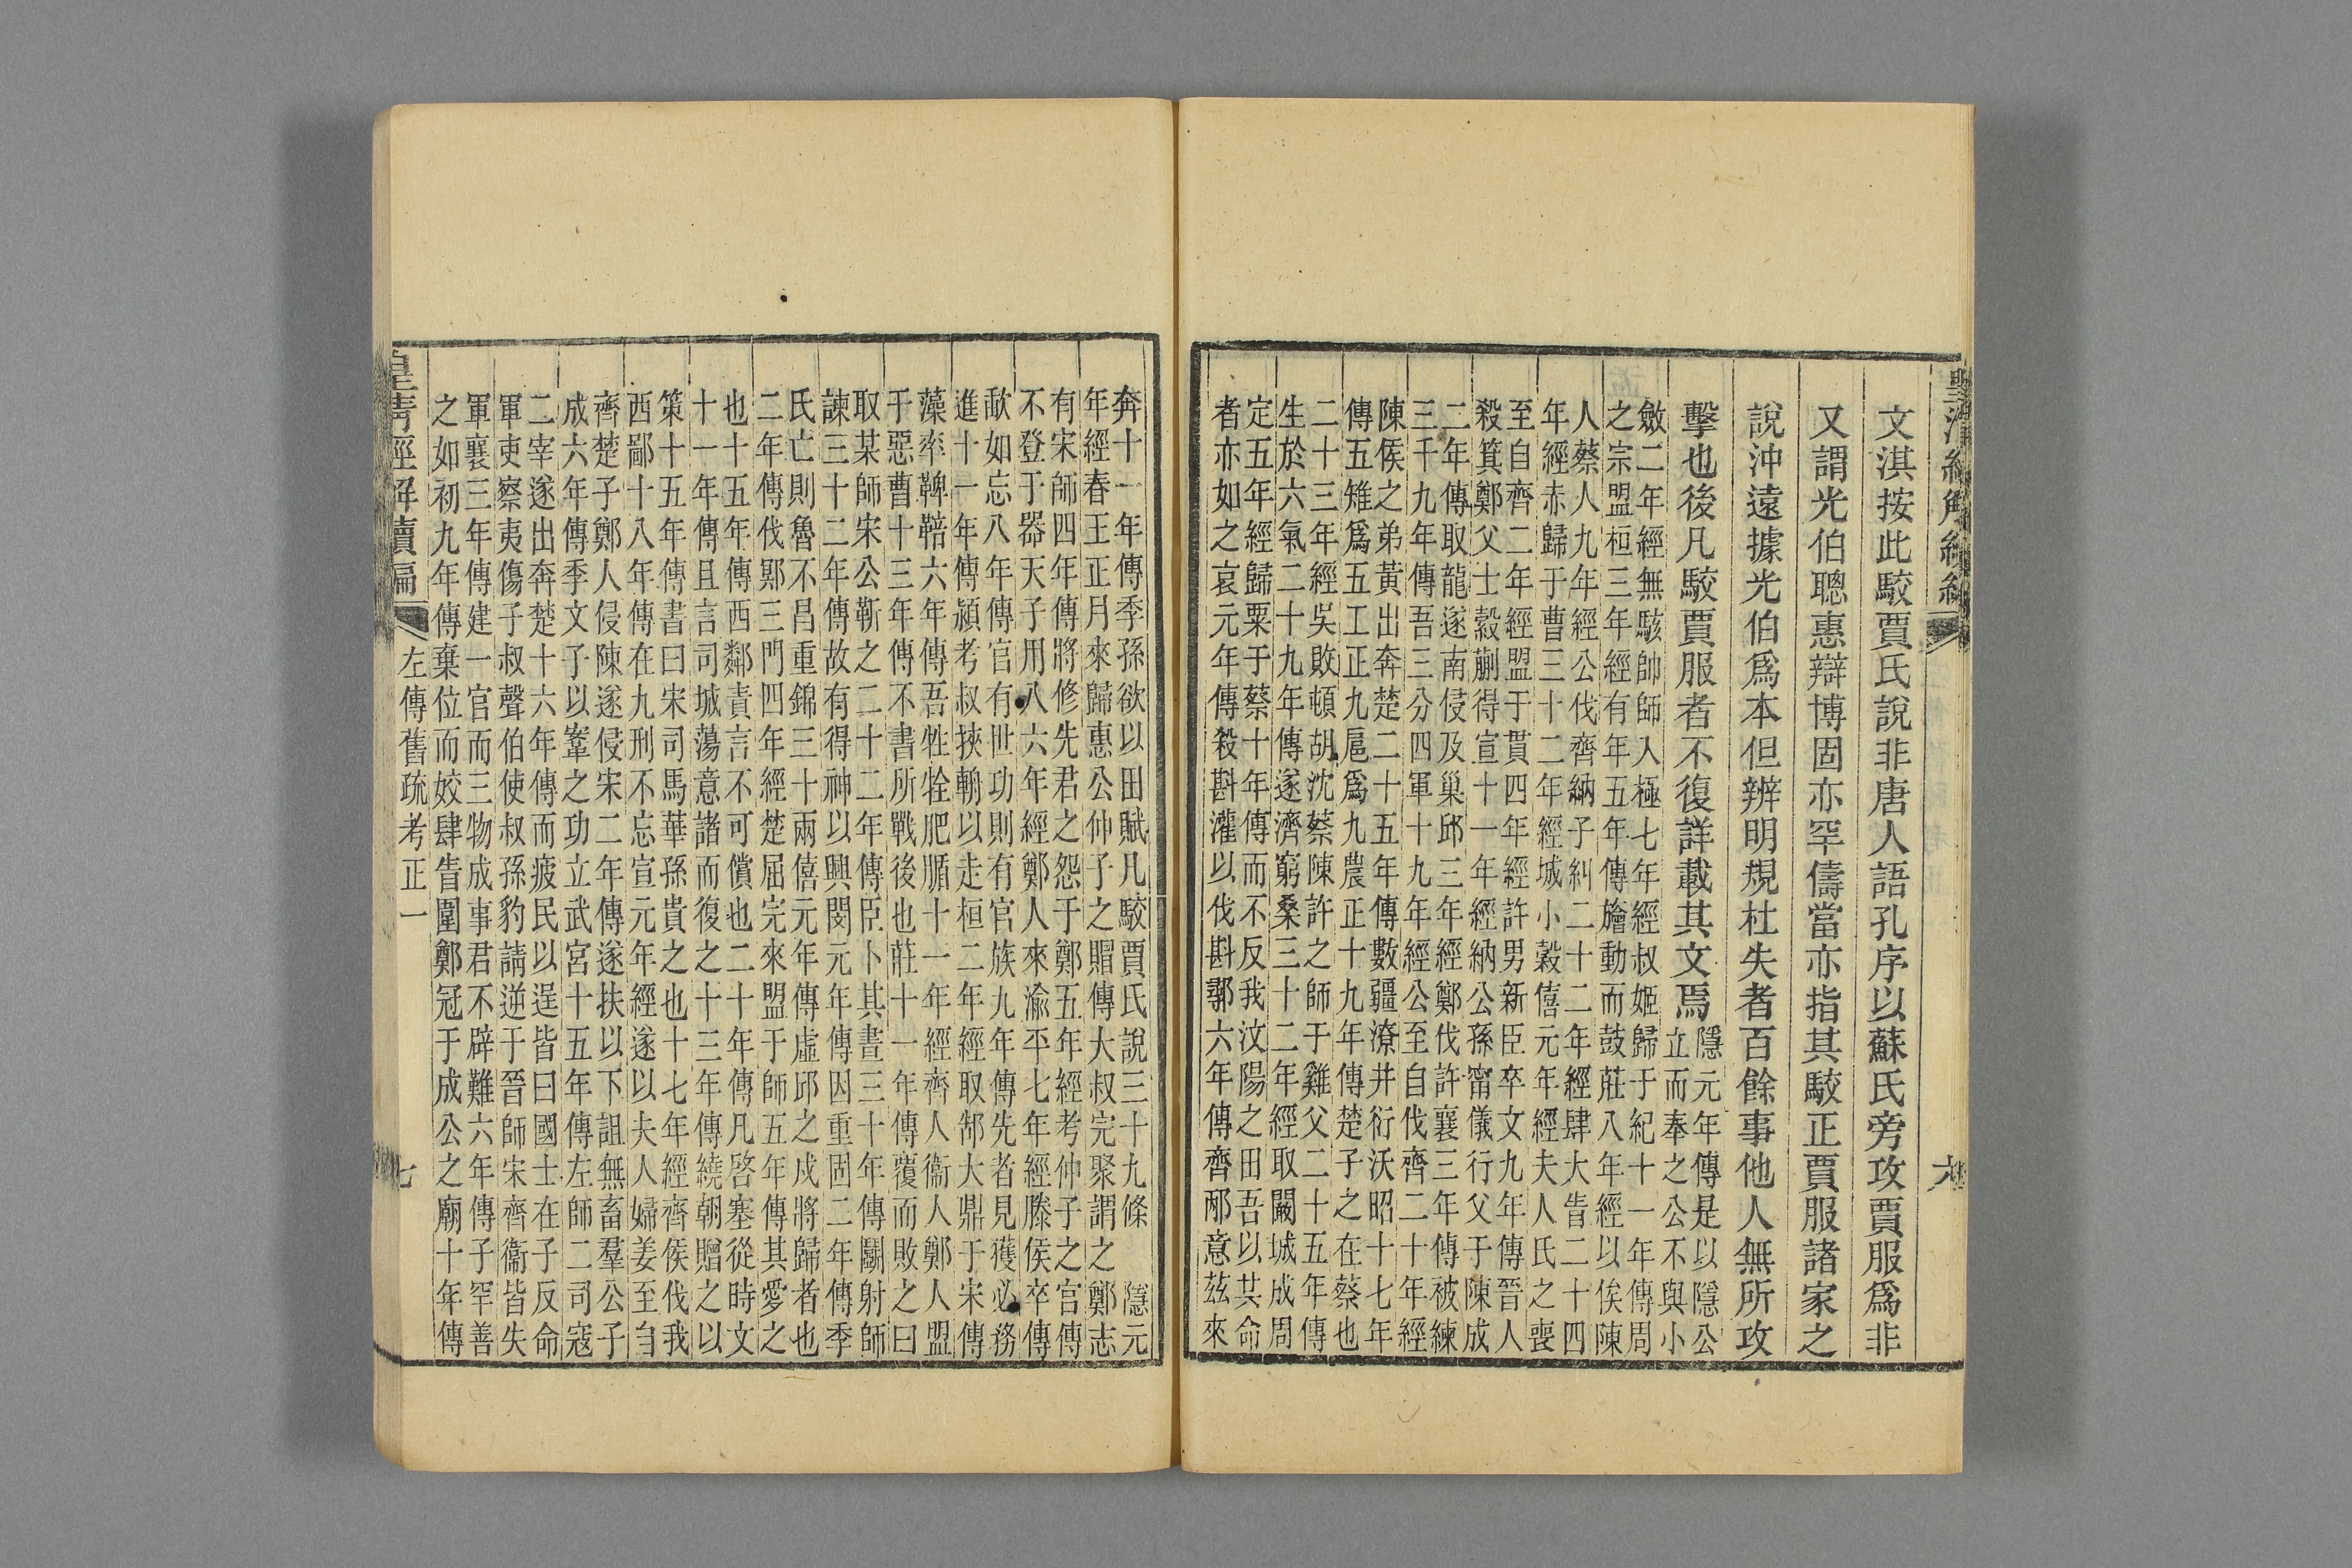 文淇按此駮賈氏說非唐人語孔序以蘇氏旁攻賈服爲非
又謂光伯聰惠辯博固亦罕儔當亦指其駮正賈服諸家之
說沖遠據光伯爲本但辨明規杜失者百餘事他人無所攻
擊也後凡駮賈服者不復詳載其文焉
隱元年傳是以隱公
立而奉之公不與小
斂二年經無駭帥師入極七年經叔姬歸于紀十一年傳周
之宗盟桓三年經有年五年傳旝動而鼓莊八年經以俟陳
人蔡人九年經公伐齊納子糾二十二年經肆大眚二十四
年經赤歸于曹三十二年經城小穀僖元年經夫人氏之喪
至自齊二年經盟于貫四年經許男新臣卒文九年傳晉人
殺箕鄭父士縠蒯得宣十一年經納公孫甯儀行父于陳成
二年傳取龍遂南侵及巢邱三年經鄭伐許襄三年傳被練
三千九年傳吾三分四軍十九年經公至自伐齊二十年經
陳侯之弟黃出奔楚二十五年傳數疆潦井衍沃昭十七年
傳五雉爲五工正九扈爲九農正十九年傳楚子之在蔡也
二十三年經吳敗頓胡沈蔡陳許之師于雞父二十五年傳
生於六氣二十九年傳遂濟窮桑三十二年經取闞城成周
定五年經歸粟于蔡十年傳而不反我汶陽之田吾以共命
者亦如之哀元年傳殺斟灌以伐斟鄩六年傳齊邴意茲來
六
奔十一年傳季孫欲以田賦凡駮賈氏說三十九條 隱元
年經春王正月來歸惠公仲子之賵傳大叔完聚謂之鄭志
有宋師四年傳將修先君之怨于鄭五年經考仲子之宮傳
不登于器天子用八六年經鄭人來渝平七年經滕侯卒傳
歃如忘八年傳官有世功則有官族九年傳先者見獲必務
進十一年傳潁考叔挾輈以走桓二年經取郜大鼎于宋傳
藻率鞞鞛六年傳吾牲牷肥腯十一年經齊人衞人鄭人盟
于惡曹十三年傳不書所戰後也莊十一年傳覆而敗之曰
取某師宋公靳之二十二年傳臣卜其晝三十年傳鬭射師
諫三十二年傳故有得神以興閔元年傳因重固二年傳季
氏亡則魯不昌重錦三十兩僖元年傳虛邱之戍將歸者也
二年傳伐鄍三門四年經楚屈完來盟于師五年傳其愛之
也十五年傳西鄰責言不可償也二十年傳凡啓塞從時文
十一年傳且言司城蕩意諸而復之十三年傳繞朝贈之以
策十五年傳書曰宋司馬華孫貴之也十七年經齊侯伐我
西鄙十八年傳在九刑不忘宣元年經遂以夫人婦姜至自
齊楚子鄭人侵陳遂侵宋二年傳遂扶以下詛無畜羣公子
成六年傳季文子以鞌之功立武宮十五年傳左師二司寇
二宰遂出奔楚十六年傳而疲民以逞皆曰國士在子反命
軍吏察夷傷子叔聲伯使叔孫豹請逆于晉師宋齊衞皆失
軍襄三年傳建一官而三物成事君不辟難六年傳子罕善
之如初九年傳棄位而姣肆眚圍鄭冠于成公之廟十年傳
皇清經解續編 左傳舊疏考正一 七